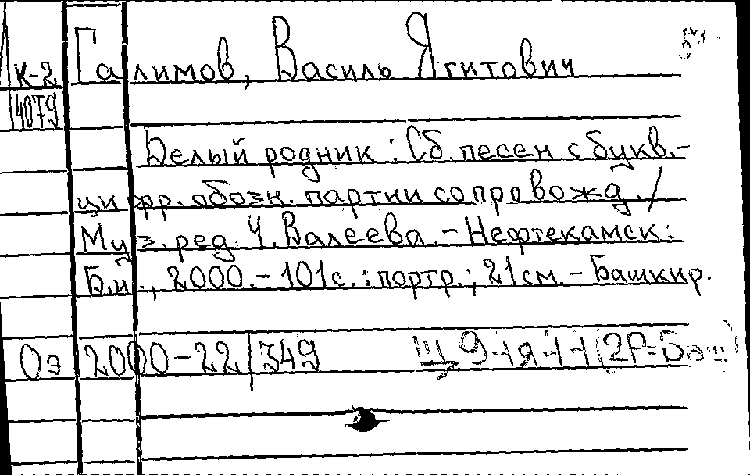 К-2 Галимов, Василь Ягитович
14079
Белый родник : Сб. песен с букв.-
цифр. обозн. партии сопровожд. /
Муз. ред. Ч. Валеева. - Нефтекамск:
Б.и., 2000. - 101с. : портр.; 21см. - Башкир.
Оэ 2000-22/349 Щ9-1я-1-1(2Р-Баш)